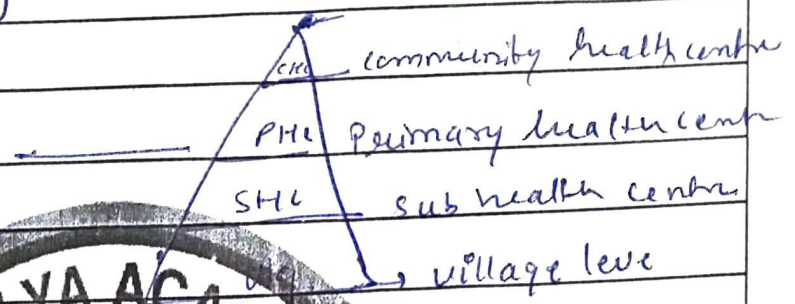 CHC community health centre
PHC Primary health cent
SHC sub health centre
village leve
YA ACA